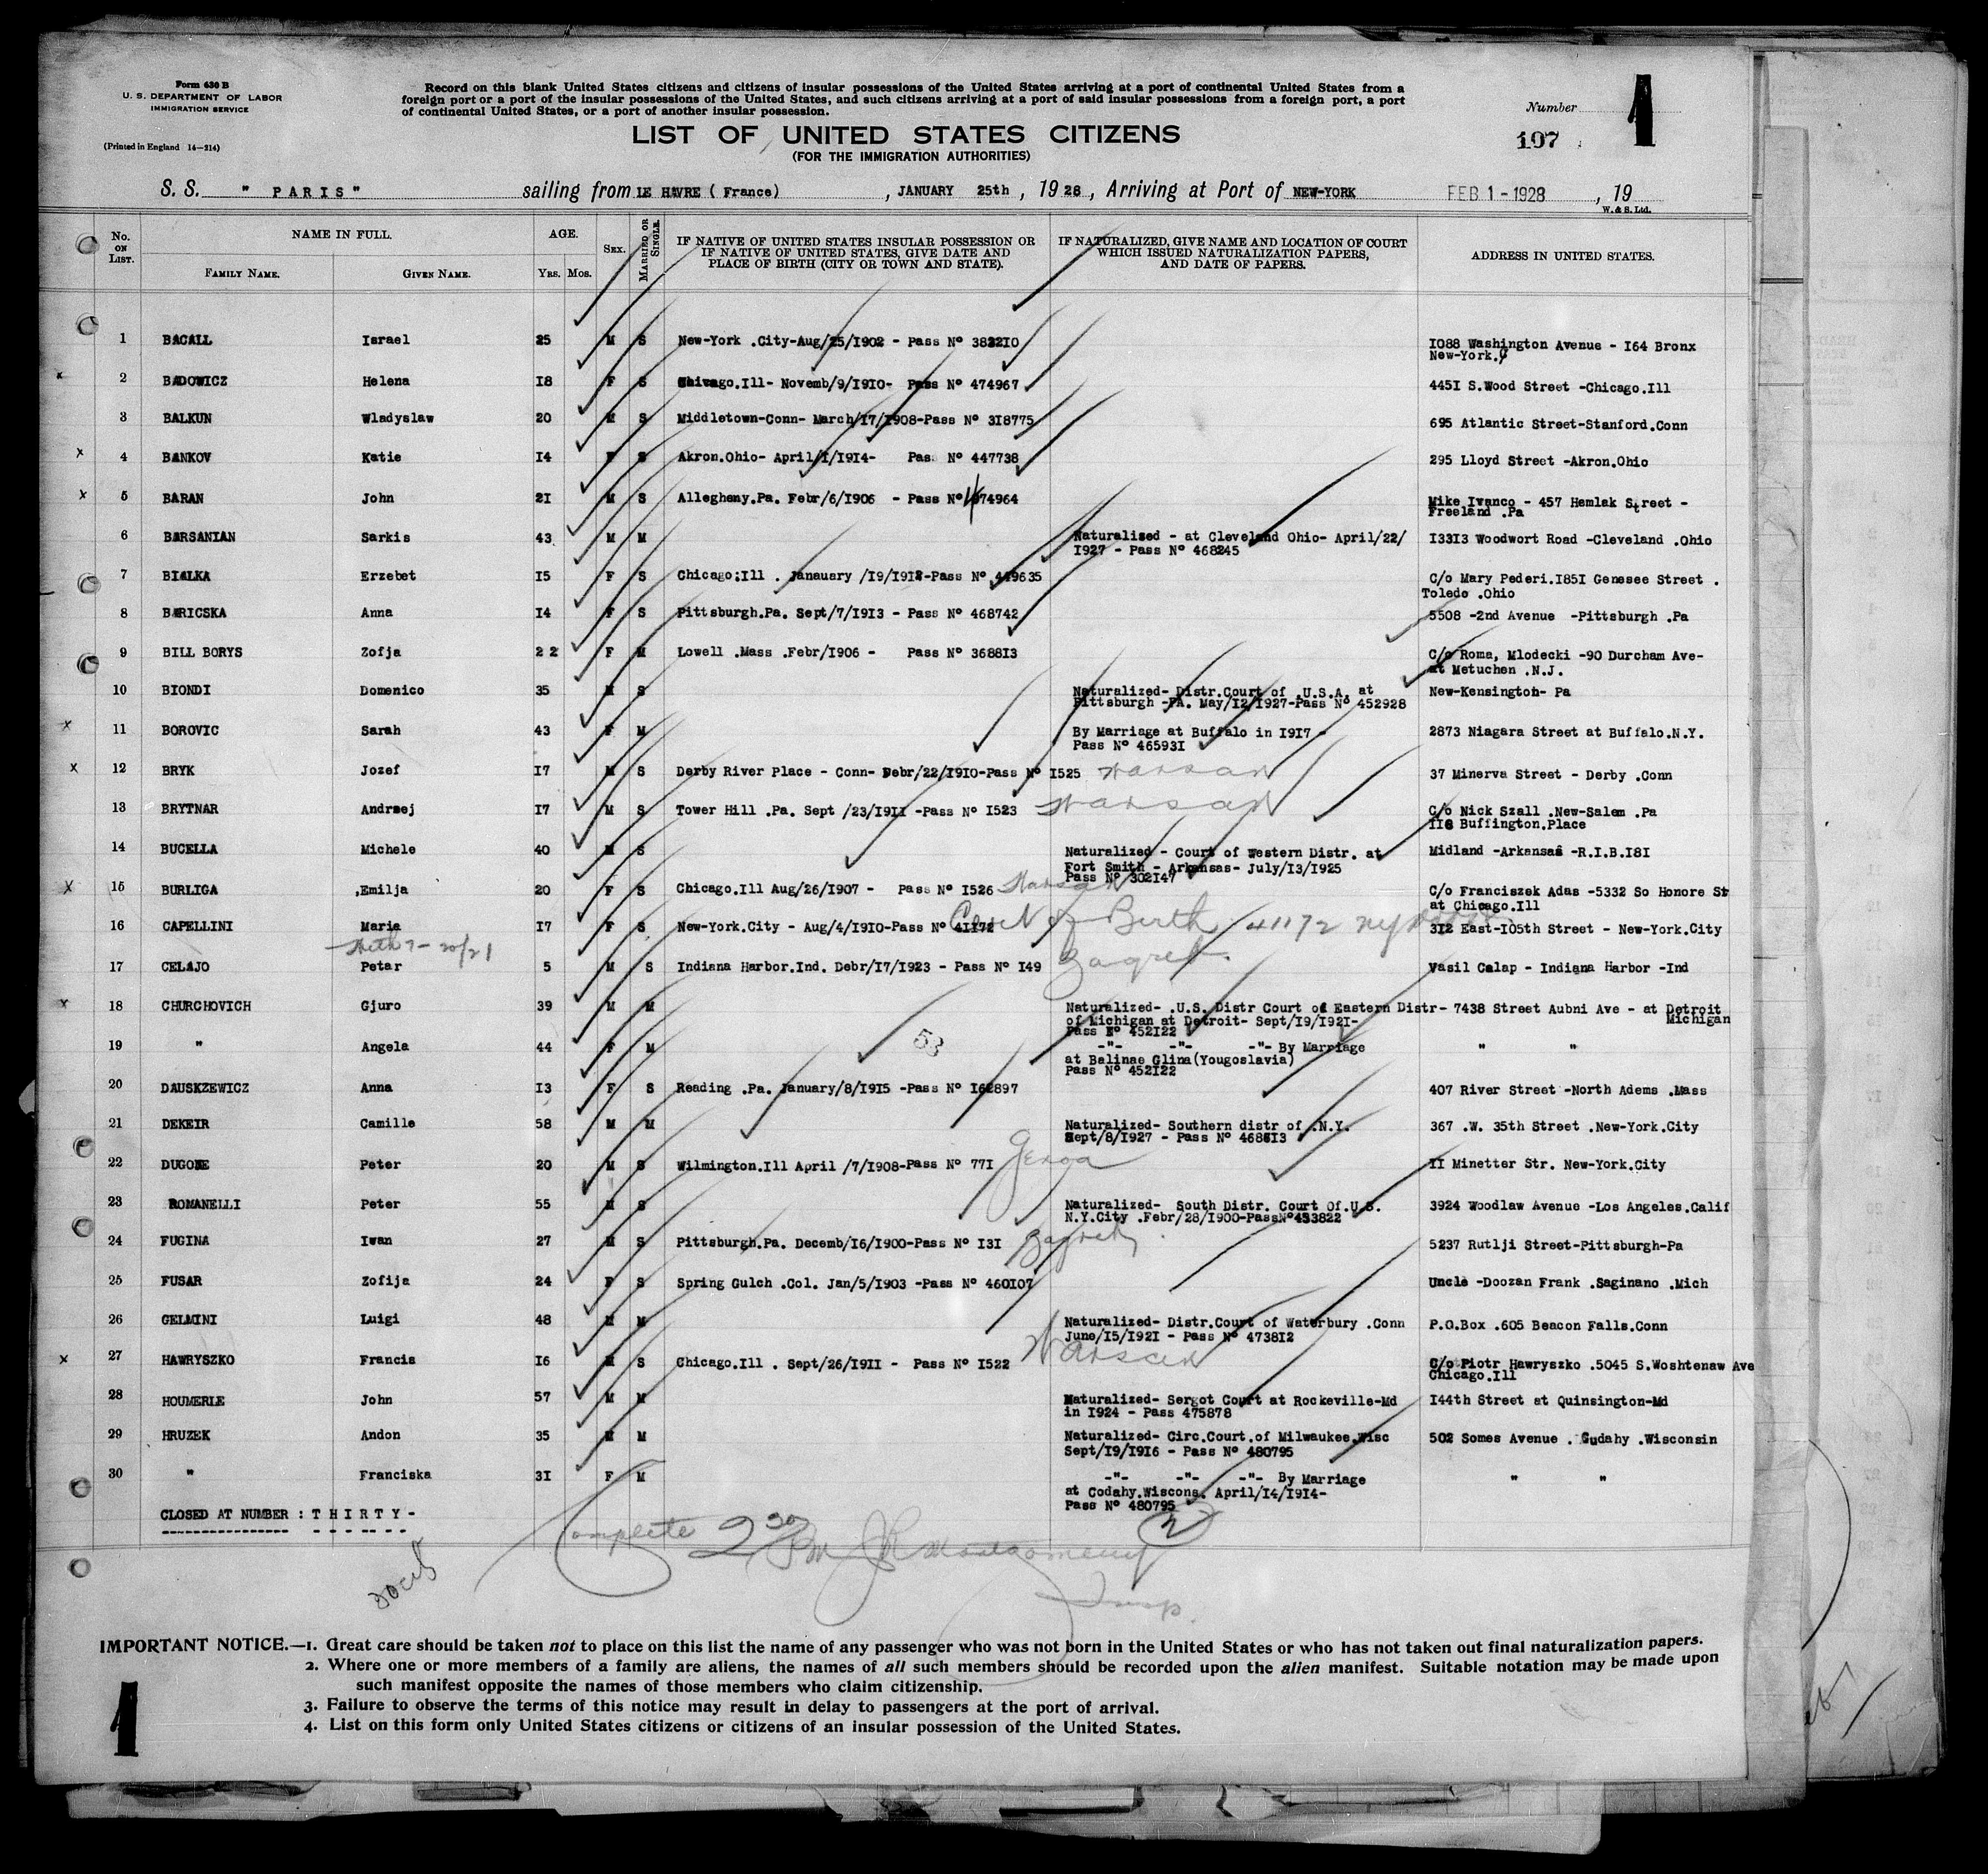 Form 630 B
U. S. DEPARTMENT OF LABOR
IMMIGRATION SERVICE
(Printed in England 14—214)
Record on this blank United States citizens and citizens of insular possessions of the United States arriving at a port of continental United States from a
foreign port or a port of the insular possessions of the United States, and such citizens arriving at a port of said insular possessions from a foreign port, a port
of continental United States, or a port of another insular possession.
LIST OF UNITED STATES CITIZENS
(FOR THE IMMIGRATION AUTHORITIES)
Number 1
107
S. S. " PARIS" sailing from LE HAVRE ( France) , JANUARY 25th , 19 28 , Arriving at Port of NEW-YORK FEB 1 - 1928 , 19
W. & S. Ltd.
No. ON LIST. NAME IN FULL. AGE. SEX. MARRIED OR SINGLE. IF NATIVE OF UNITED STATES INSULAR POSSESSION OR IF NATIVE OF UNITED STATES, GIVE DATE AND PLACE OF BIRTH (CITY OR TOWN AND STATE). IF NATURALIZED, GIVE NAME AND LOCATION OF COURT WHICH ISSUED NATURALIZATION PAPERS, AND DATE OF PAPERS. ADDRESS IN UNITED STATES.
FAMILY NAME. GIVEN NAME. YRS. MOS.
1 BACALL Israel 25 M S New-York .City-Aug/25/1902 - Pass Nº 383210 1088 Washington Avenue - 164 Bronx
New-York.
x 2 BADOWICZ Helena 18 F S Chivago.Ill- Novemb/9/1910- Pass Nº 474967 4451 S.Wood Street -Chicago.Ill
3 BALKUN Wladyslaw 20 M S Middletown-Conn- March/17/1908-Pass Nº 318775 695 Atlantic Street-Stanford.Conn
x 4 BANKOV Katie 14 F S Akron.Ohio- April/1/1914- Pas. Nº 447738 295 Lloyd Street -Akron.Ohio
x 5 BARAN John 21 M S Allegheny.Pa. Febr/6/1906 - Pass Nº 474964 Mike Ivanco - 457 Hemlak Street -
Freeland .Pa
6 BARSANIAN Sarkis 43 M M Naturalized - at Cleveland Ohio- April/22/ 13313 Woodwort Road -Cleveland .Ohio
1927 - Pass Nº 468245
7 BIALKA Erzebet 15 F S Chicago;Ill . Janauary /19/1912-Pass Nº 449635 C/o Mary Pederi.1851 Genesee Street .
Toledo .Ohio
8 BARICSKA Anna 14 F S Pittsburgh.Pa. Sept/7/1913 - Pass Nº 468742 5508 -2nd Avenue -Pittsburgh .Pa
9 BILL BORYS Zofja 2 2 F M Lowell .Mass .Febr/1906 - Pass Nº 368813 C/o Roma, Mlodecki -90 Durcham Ave-
at Metuchen .N.J.
10 BIONDI Domenico 35 M S Naturalized- Distr.Court of .U.S.A. at New-Kensington- Pa
Pittsburgh -PA. May/12/1927-Pass Nº 452928
x 11 BOROVIC Sarah 43 F M By Marriage at Buffalo in 1917 - 2873 Niagara Street at Buffalo.N.Y.
Pass Nº 465931
x 12 BRYK Jozef 17 M S Derby River Place - Conn- Febr/22/1910-Pass Nº 1525 Warsaw 37 Minerva Street - Derby .Conn
13 BRYTNAR Andrzej 17 M S Tower Hill .Pa. Sept /23/1911 -Pass Nº 1523 Warsaw C/o Nick Szall .New-Salem .Pa
118 Buffington.Place
14 BUCELLA Michele 40 M S Naturalized - Court of Western Distr. at Midland -Arkansas -R.I.B.181
Fort Smith - Arkansas- July/13/1925
Pass Nº 302147
x 15 BURLIGA ,Emilja 20 F S Chicago.Ill Aug/26/1907 - Pass Nº 1526 Warsaw C/o Franciszek Adas -5332 So Honore St
at Chicago.Ill
16 CAPELLINI Maria 17 F S New-York.City - Aug/4/1910-Pass Nº 41172 Cert of Birth 41172 312 East-105th Street - New-York.City
17 CELAJO Petar 5 M S Indiana Harbor.Ind. Debr/17/1923 - Pass Nº 149 Zagreb. Vasil Calap - Indiana Harbor -Ind
x 18 CHURCHOVICH Gjuro 39 M M Naturalized- .U.S. Distr Court of Eastern Distr- 7438 Street Aubni Ave - at Detroit
of Michigan at Detroit- Sept/19/1921- Michigan
Pass Nº 452122
53
19 " Angela 44 F M -"- -"- -"- By Marriage " "
at Balinae Glina(Yougoslavia)
Pass Nº 452122
20 DAUSKZEWICZ Anna 13 F S Reading .Pa. January/8/1915 -Pass Nº 162897 407 River Street -North Adems .Mass
21 DEKEIR Camille 58 M M Naturalized- Southern distr of .N.Y. 367 .W. 35th Street .New-York.City
Sept/8/1927 - Pass Nº 468613
22 DUGONE Peter 20 M S Wilmington.Ill April /7/1908-Pass Nº 771 Genoa 11 Minetter Str. New-York.City
23 ROMANELLI Peter 55 M S Naturalized- South Distr. Court Of.U.S. 3924 Woodlaw Avenue -Los Angeles.Calif
N.Y.City .Febr/28/1900-PassNº453822
24 FUGINA Iwan 27 M S Pittsburgh.Pa. Decemb/16/1900-Pass Nº 131 Zagreb 5237 Rutlji Street-Pittsburgh-Pa
25 FUSAR Zofija 24 F S Spring Gulch .Col. Jan/5/1903 -Pass Nº 460107 Uncle -Doozan Frank .Saginano .Mich
26 GELMINI Luigi 48 M M Naturalized- Distr.Court of Waterbury .Conn P.O.Box .605 Beacon Falls.Conn
June/15/1921 - Pass Nº 473812
x 27 HAWRYSZKO Francis 16 M S Chicago.Ill . Sept/26/1911 - Pass Nº 1522 Warsaw C/o Piotr Hawryszko .5045 S.Woshtenaw Ave
Chicago.Ill
28 HOUMERLE John 57 M M Naturalized- Sergot Court at Rockeville-Md 144th Street at Quinsington-Md
in 1924 - Pass 475878
29 HRUZEK Andon 35 M M Naturalized- Circ.Court.of Milwaukee.Wisc 502 Somes Avenue . Cudahy .Wisconsin
Sept/19/1916 - Pass Nº 480795
30 " Franciska 31 F M -"- -"- -"- By Marriage " "
at Codahy.Wiscons. April/14/1914-
Pass Nº 480795
CLOSED AT NUMBER : T H I R T Y -
2
Complete 2 30 PM J R Montgomery
Insp.
IMPORTANT NOTICE.—1. Great care should be taken not to place on this list the name of any passenger who was not born in the United States or who has not taken out final naturalization papers.
2. Where one or more members of a family are aliens, the names of all such members should be recorded upon the alien manifest. Suitable notation may be made upon
such manifest opposite the names of those members who claim citizenship.
3. Failure to observe the terms of this notice may result in delay to passengers at the port of arrival.
4. List on this form only United States citizens or citizens of an insular possession of the United States.
1